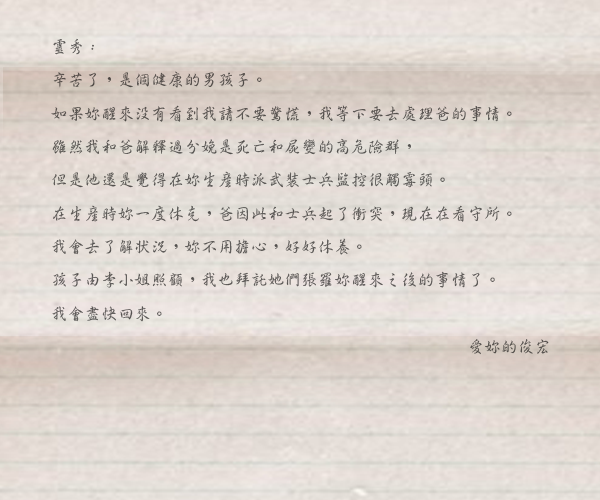 靈秀：
辛苦了，是個健康的男孩子。
如果妳醒來沒有看到我請不要驚慌，我等下要去處理爸的事情。
雖然我和爸解釋過分娩是死亡和屍變的高危險群，
但是他還是覺得在妳生產時派武裝士兵監控很觸霉頭。
在生產時妳一度休克，爸因此和士兵起了衝突，現在在看守所。
我會去了解狀況，妳不用擔心，好好休養。
孩子由李小姐照顧，我也拜託她們張羅妳醒來之後的事情了。
我會盡快回來。
愛妳的俊宏